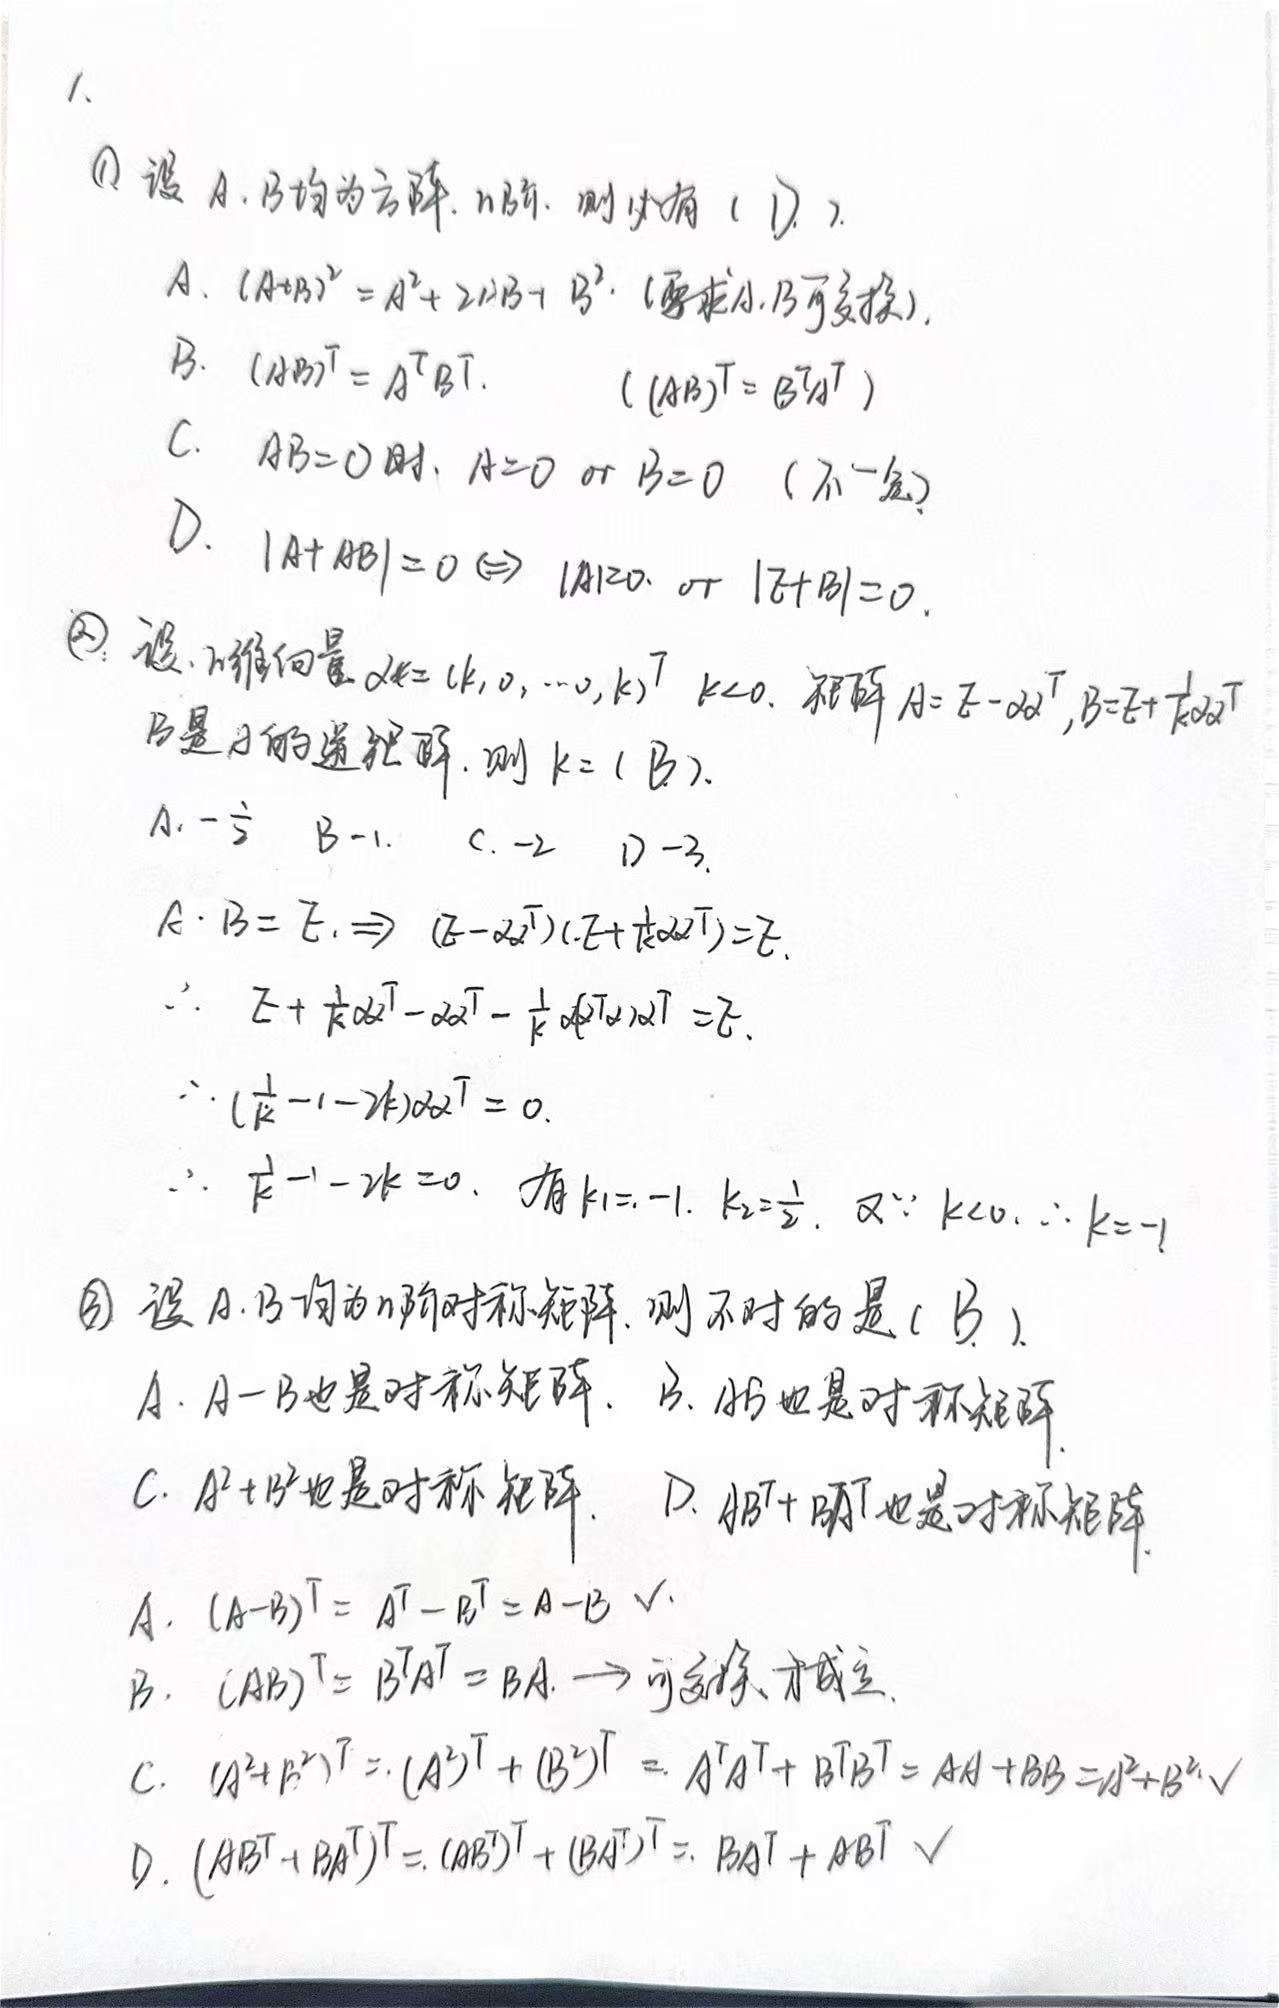 1.
① 设 A.B均为方阵.n阶. 则必有 ( D ).
A. (A+B)² = A²+2AB+B². (要求A.B可交换).
B. (AB)ᵀ = AᵀBᵀ. ((AB)ᵀ = BᵀAᵀ)
C. AB=0时. A=0 or B=0 (不一定)
D. |A+AB|=0 ⇔ |A|=0. or |E+B|=0.
②. 设.n维向量 α=(k,0,…0,k)ᵀ k<0. 矩阵 A=E-ααᵀ,B=E+1/kααᵀ
B是A的逆矩阵.则 k=(B).
A.-1/2 B-1. C.-2 D-3.
A·B=E.⇒ (E-ααᵀ)(E+1/kααᵀ)=E.
∴ E+1/kααᵀ-ααᵀ-1/kα(αᵀα)αᵀ=E.
∴ (1/k-1-2k)ααᵀ=0.
∴ 1/k-1-2k=0. 有k₁=-1. k₂=1/2. 又∵ k<0.∴ k=-1
③ 设A.B均为n阶对称矩阵.则不对的是(B).
A. A-B也是对称矩阵. B. AB也是对称矩阵.
C. A²+B²也是对称矩阵. D. ABᵀ+BAᵀ也是对称矩阵.
A. (A-B)ᵀ=Aᵀ-Bᵀ=A-B ✓.
B. (AB)ᵀ=BᵀAᵀ=BA. → 可交换才成立.
C. (A²+B²)ᵀ=(A²)ᵀ+(B²)ᵀ=AᵀAᵀ+BᵀBᵀ=AA+BB=A²+B².✓
D. (ABᵀ+BAᵀ)ᵀ=(ABᵀ)ᵀ+(BAᵀ)ᵀ=BAᵀ+ABᵀ ✓